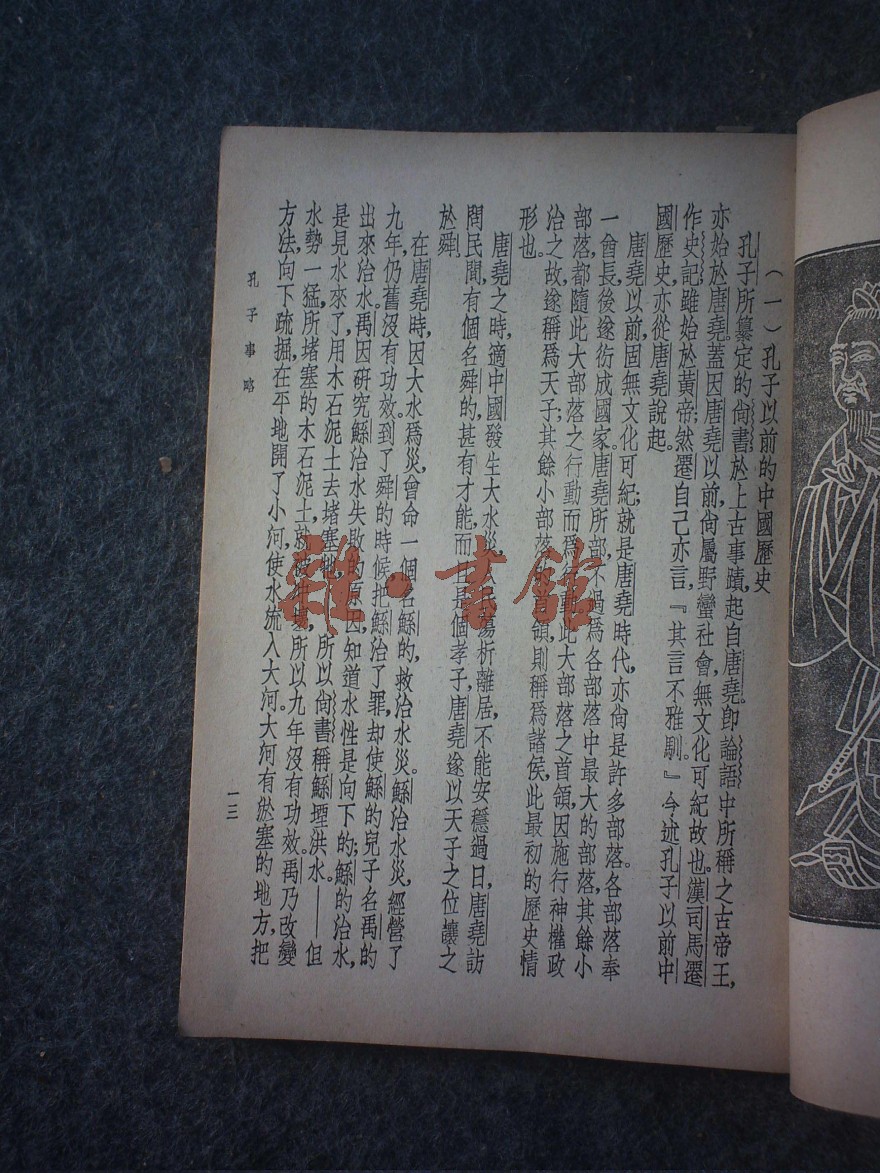 （一）孔子以前的中國歷史
孔子所纂定的尙書於上古事蹟，起自唐堯。卽論語中所稱之古帝王，
亦始於唐堯蓋因唐堯以前，尙屬野蠻社會，無文化可紀故也。漢司馬遷
作史記雖始於黃帝；然遷自己亦言，『其言不雅馴。』今述孔子以前中
國歷史亦從唐堯說起。
唐堯以前，固無文化可紀；就是唐堯時代，亦尙是許多部落。各部落奉
一酋長，後遂衍成國家。唐堯所部，不過爲各部落中最大的部落，其餘小
部落，都隨此大部落之行動而爲行動，此大部落之首領，因施行神權政
治之故，遂稱爲天子；其餘小部落首領，則稱爲諸侯，此最初的歷史情
形也。
唐堯之時，適中國發生大水災，蕩析離居，不能安穩過日，唐堯訪
問民間，有個名舜的，甚有才能，而且是個孝子，唐堯遂以天子之位讓之
於舜。
在唐堯時，因大水爲災，曾命一個名鯀的，救治水災。鯀治水災，經營了
九年，仍舊沒有功效。到了舜的時候，把鯀治了罪，却使鯀的兒子名禹的
出來治水。禹因研究鯀治水失敗的原因，知道水性是向下的；鯀的治水，
是見水來了，用木石泥土去堵塞，所以尙書稱鯀堙洪水。——但
水勢一猛，所堵塞的木石泥土，就所以九年沒有功效。禹乃改變
方法，向下疏掘，在平地開了小河，使水流入大河。大河有淤塞的地方，把
孔子事略
一三
雜·書館